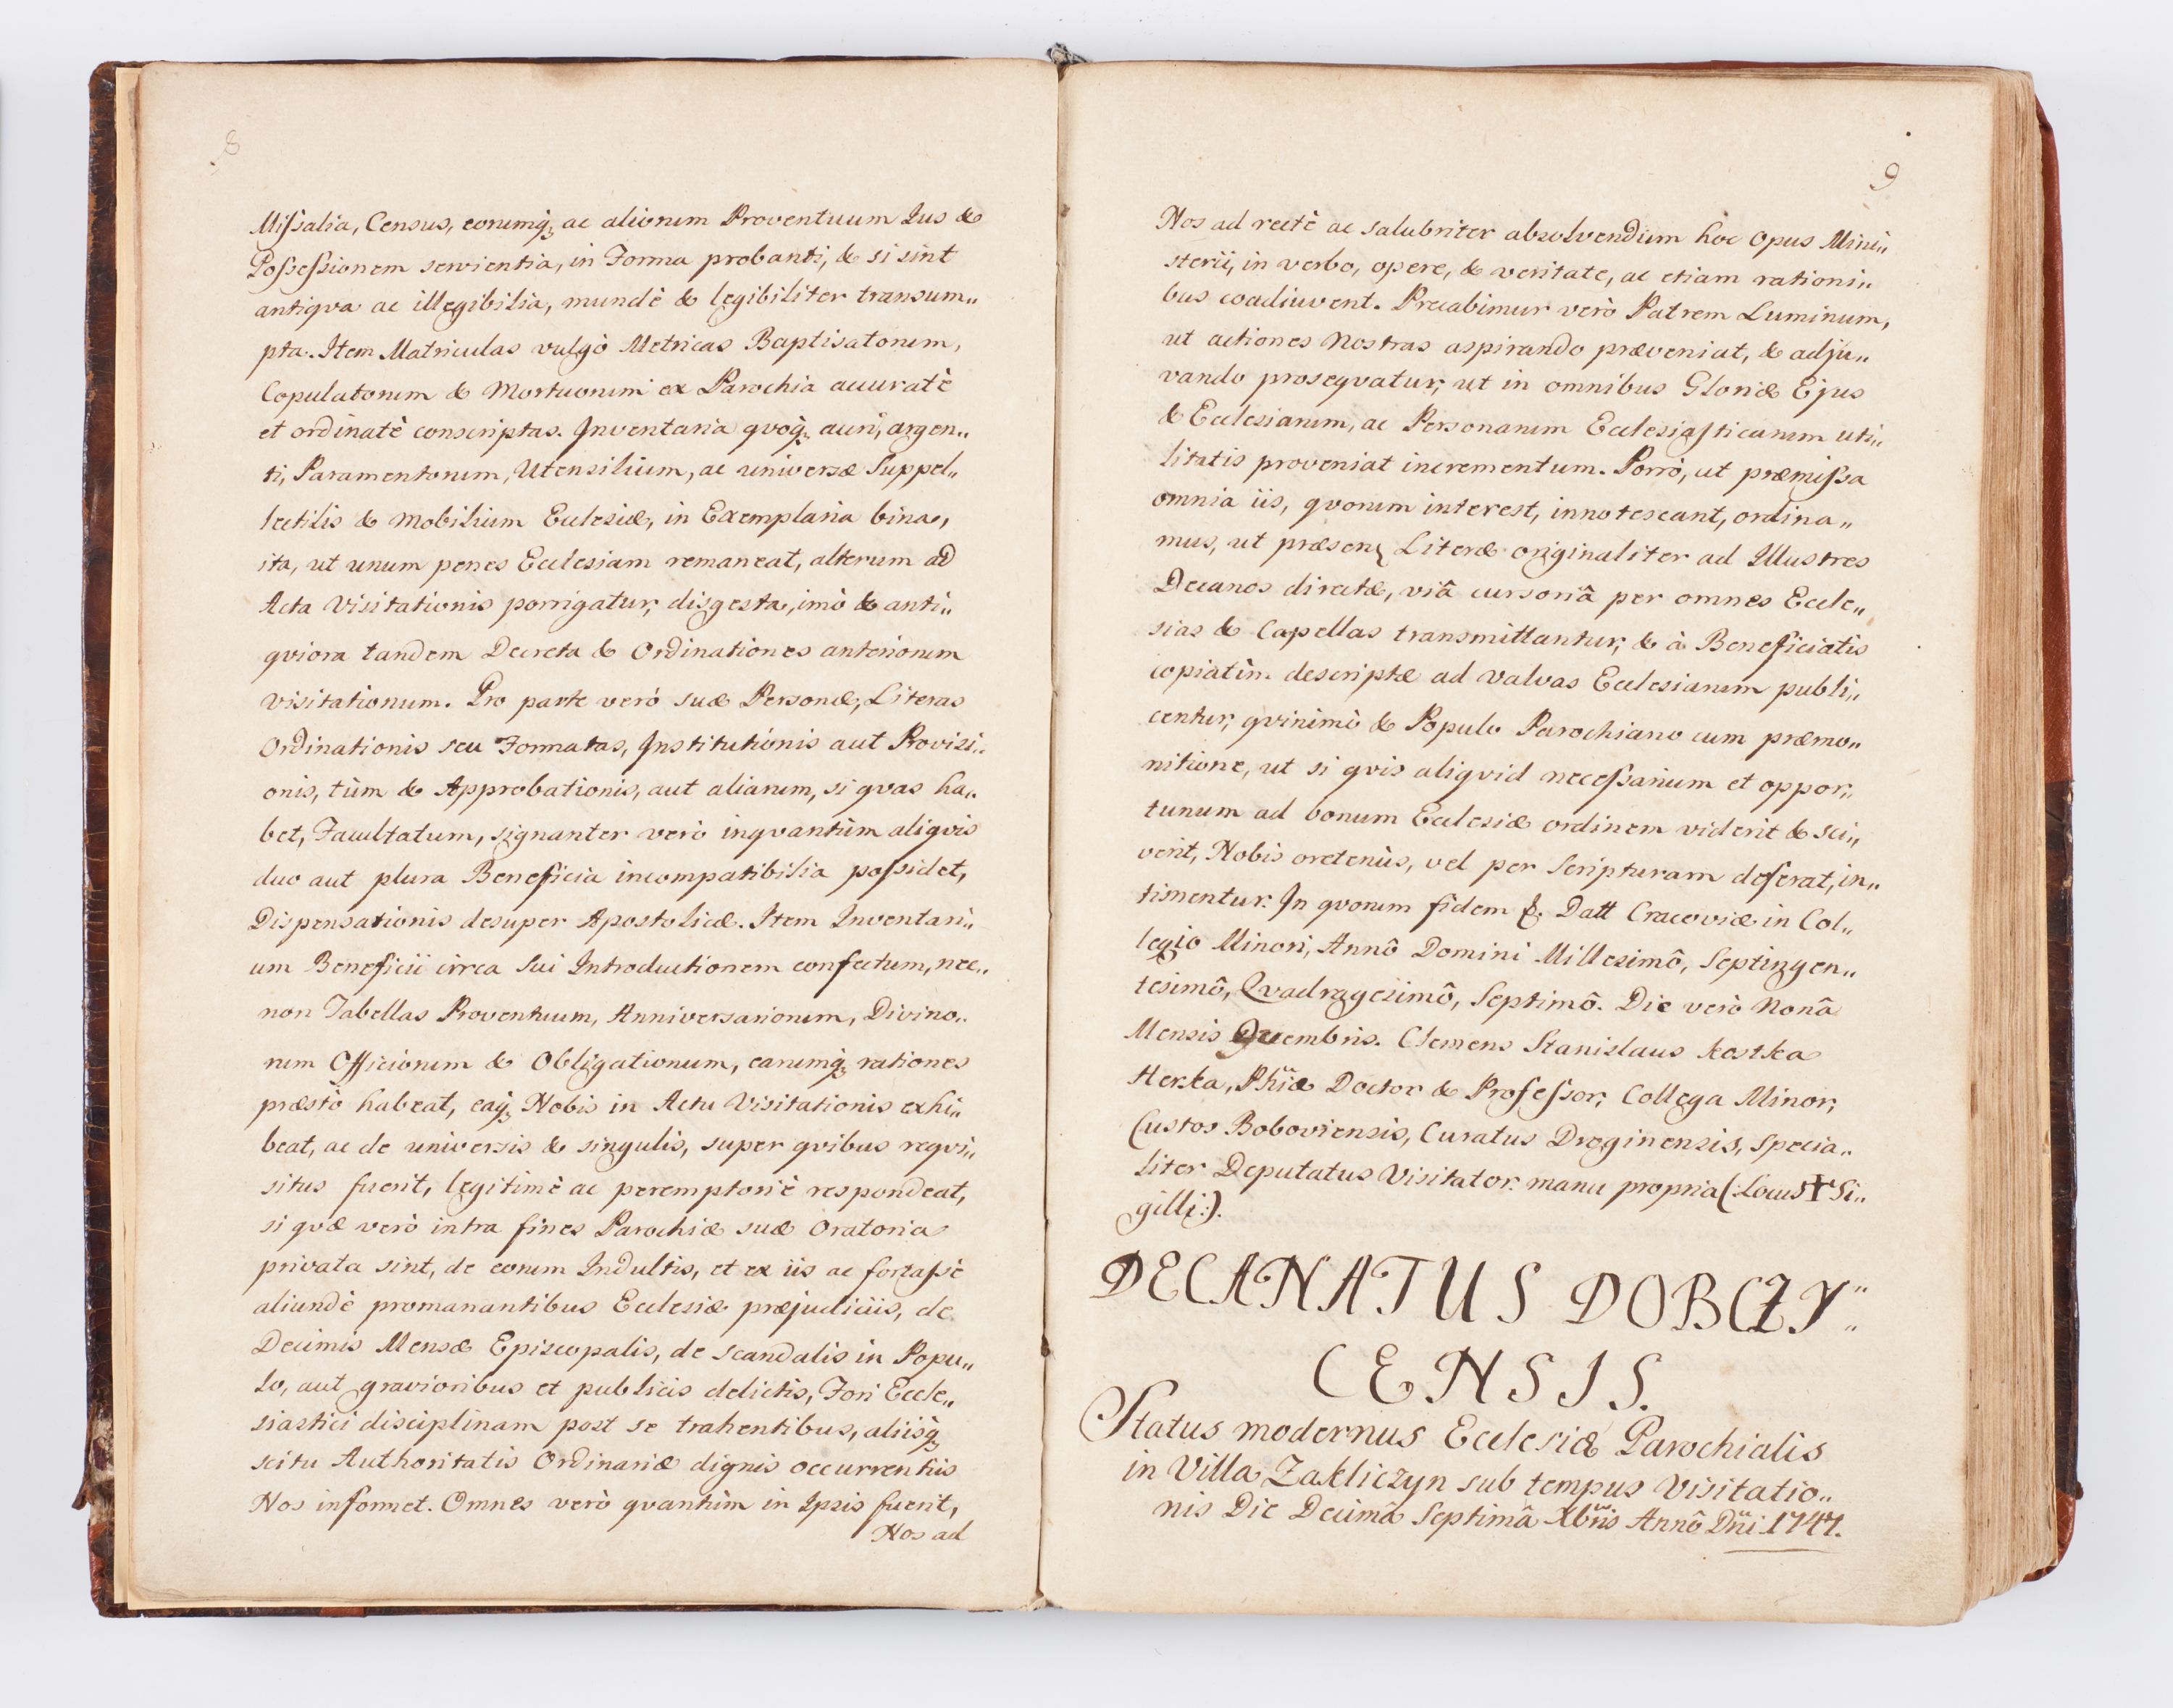 8
Missalia, Census, eorumq; ac aliorum Proventuum Ius &
Possessionem servientia, in Forma probanti, & si sint
antiqva ac illegibilia, mundè & legibiliter transum„
pta. Item Matriculas vulgò Metricas Baptisatorum,
Copulatorum & Mortuorum ex Parochia accuratè
et ordinatè conscriptas. Inventaria qvoq; auri, argen„
ti, Paramentorum, Utensilium, ac universæ Suppel„
lectilis & mobilium Ecclesiæ, in Exemplaria bina,
ita, ut unum penes Ecclesiam remaneat, alterum ad
Acta Visitationis porrigatur, disgesta, imò & anti„
qviora tandem Decreta & Ordinationes anteriorum
visitationum. Pro parte verò suæ Personæ, Literas
Ordinationis seu Formatas, Institutionis aut Provisi„
onis, tùm & Approbationis, aut aliarum, si qvas ha„
bet, Facultatum, signanter verò inqvantùm aliqvis
duo aut plura Beneficia incompatibilia possidet,
Dispensationis desuper Apostolicæ. Item Inventari„
um Beneficii circa sui Introductionem confectum, nec„
non Tabellas Proventuum, Anniversariorum, Divino„
rum Officiorum & Obligationum, earumq; rationes
præstò habeat, eaq; Nobis in Actu Visitationis exhi„
beat, ac de universis & singulis, super qvibus reqvi„
situs fuerit, legitimè ac peremptoriè respondeat,
si qvæ verò intra fines Parochiæ suæ Oratoria
privata sint, de eorum Indultis, et ex iis ac fortassè
aliundè promanantibus Ecclesiæ præjudiciis, de
Decimis Mensæ Episcopalis, de scandalis in Popu„
lo, aut gravioribus et publicis delictis, Fori Eccle„
siastici disciplinam post se trahentibus, aliisq;
scitu Authoritatis Ordinariæ dignis occurrentiis
Nos informet. Omnes verò qvantùm in Ipsis fuerit,
Nos ad
9
Nos ad rectè ac salubriter absolvendum hoc opus Mini„
sterii, in verbo, opere, & veritate, ac etiam rationi„
bus coadiuvent. Precabimur verò Patrem Luminum,
ut actiones Nostras aspirando præveniat, & adju„
vando proseqvatur, ut in omnibus Gloriæ Ejus
& Ecclesiarum, ac Personarum Ecclesiasticarum uti„
litatis proveniat incrementum. Porrò, ut præmissa
omnia iis, qvorum interest, innotescant, ordina„
mus, ut præsen Literæ originaliter ad Illustres
Decanos directæ, viâ cursoriâ per omnes Eccle„
sias & Capellas transmittantur, & à Beneficiatis
copiatìm descriptæ ad valvas Ecclesiarum publi„
centur, qvinimò & Populo Parochiano cum præmo„
nitione, ut si qvis aliqvid necessarium et oppor„
tunum ad bonum Ecclesiæ ordinem viderit & sci„
verit, Nobis oretenùs, vel per Scripturam deferat, in„
timentur. In qvorum fidem &. Datt Cracoviæ in Col„
legio Minori, Annô Domini Millesimô, Septingen„
tesimô, Qvadragesimô, Septimô. Die verò Nonâ
Mensis Decembris. Clemens Stanislaus Kostka
Herka, Phiæ Doctor & Professor, Collega Minor,
Custos Boboviensis, Curatus Droginensis, Specia„
liter Deputatus Visitator. manu propria (:Locus † Si„
gilli:).
DECANATUS DOBCZY„
CENSIS.
Status modernus Ecclesiæ Parochialis
in Villa Zakliczyn sub tempus Visitatio„
nis Die Decimâ Septimâ Xbris Annô Dni 1747.